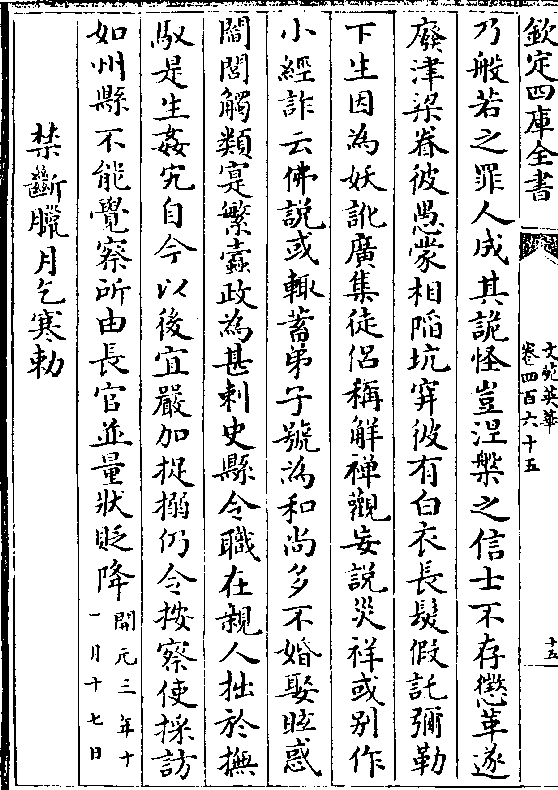 欽定四庫全書
文苑英華
卷四百六十五
十五
乃般若之罪人成其詭怪豈涅槃之信士不存懲革遂
廢津梁眷彼愚蒙相陷坑穽彼有白衣長髮假託彌勒
下生因為妖訛廣集徒侶稱解禪觀妄說災祥或别作
小經詐云佛説或輙蓄弟子號為和尚多不婚娶眩惑
閭閻觸類寔繁蠧政為甚刺史縣令職在親人拙於撫
馭是生姦宄自今以後宜嚴加捉搦仍令按察使採訪
如州縣不能覺察所由長官並量狀貶降
開元三年十
一月十七日
禁斷臘月乞寒勅